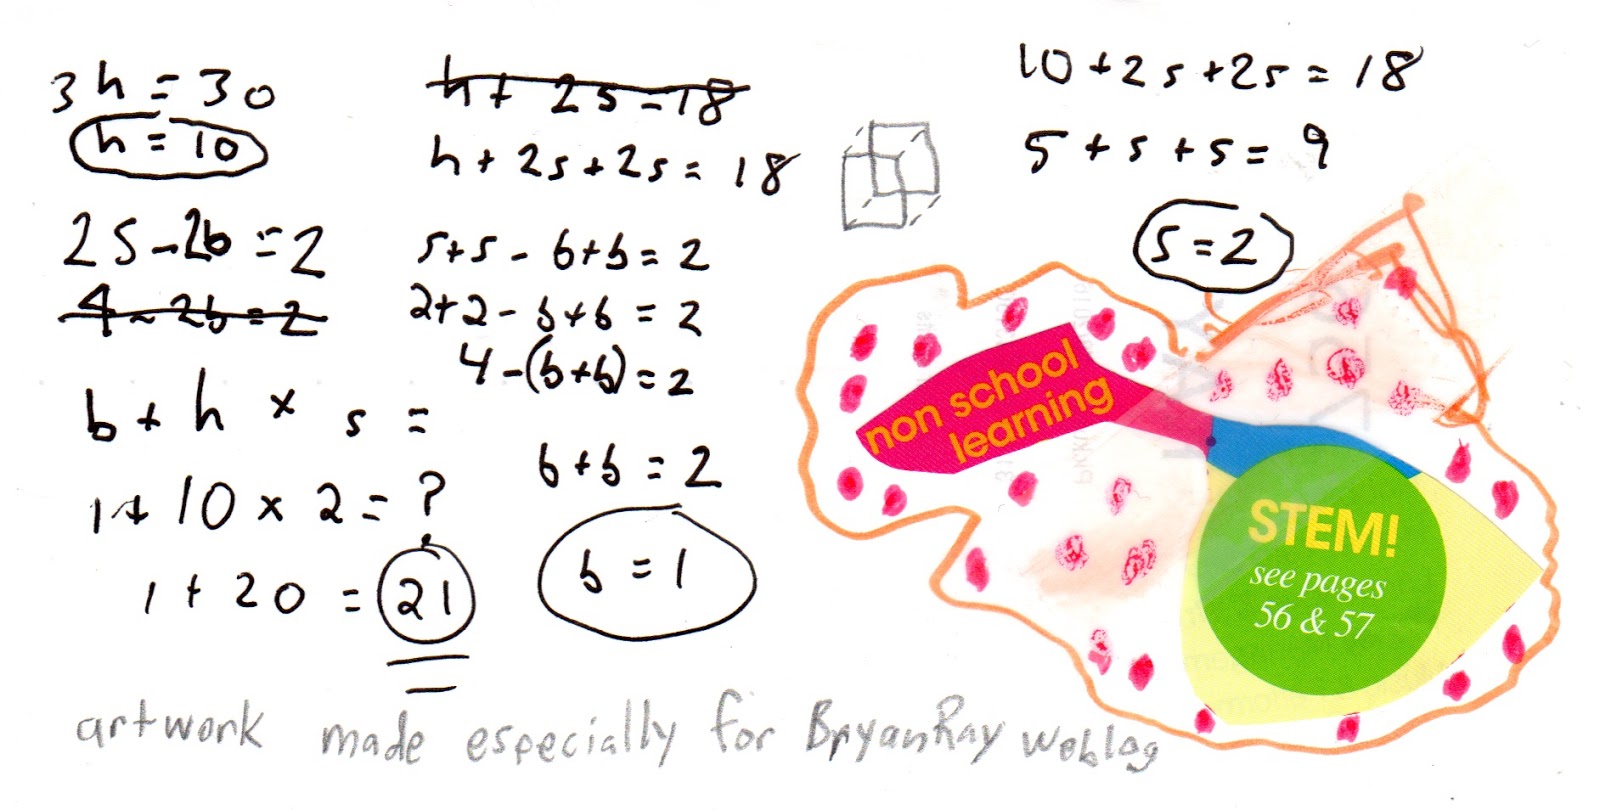 3h = 30
h = 10
2s - 2b = 2
4 - 2b = 2
b + h × s =
1 + 10 × 2 = ?
1 + 20 = 21
h + 2s = 18
h + 2s + 2s = 18
s+s - b+b = 2
2+2 - b+b = 2
4 - (b+b) = 2
b+b = 2
b = 1
10 + 2s + 2s = 18
5 + s + s = 9
s = 2
non school
learning
STEM!
see pages
56 & 57
artwork made especially for BryanRay weblog